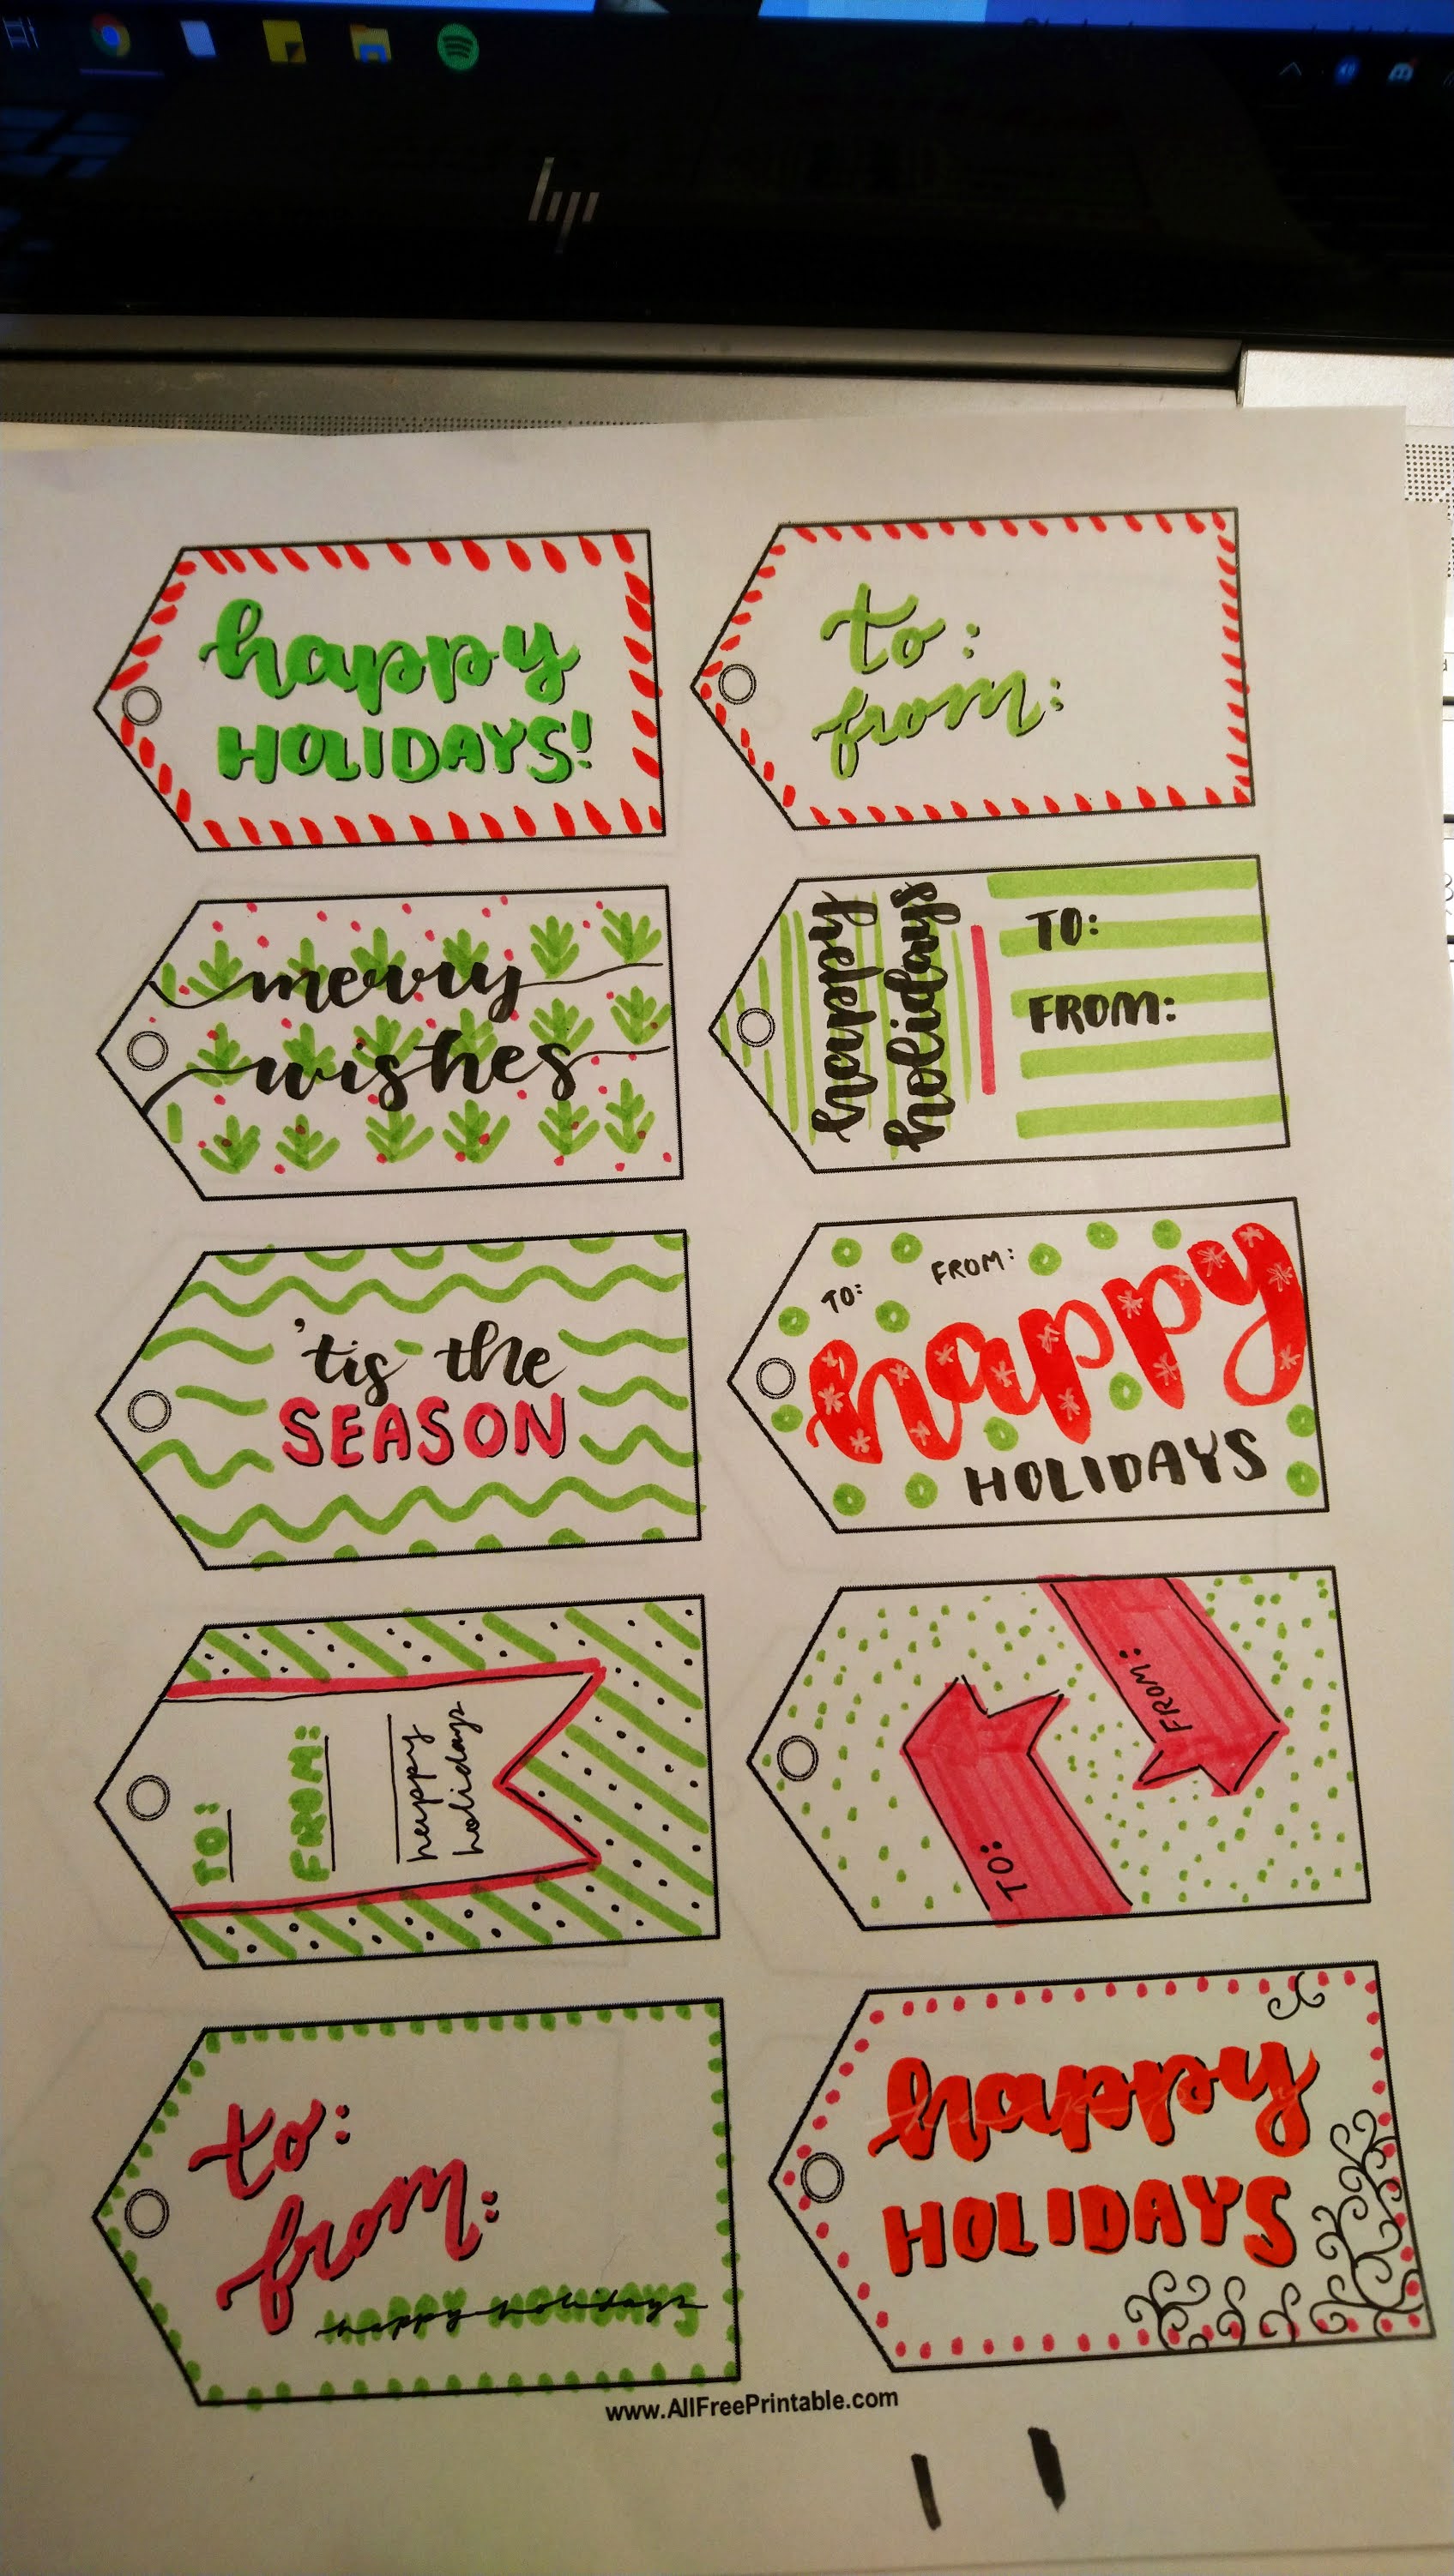 hp
happy
HOLIDAYS!
to:
from:
merry
wishes
happy
holidays
TO:
FROM:
'tis the
SEASON
TO:
FROM:
happy
HOLIDAYS
TO:
FROM:
happy
holidays
FROM:
TO:
to:
from:
HAPPY HOLIDAYS
happy holidays
happy
HOLIDAYS
www.AllFreePrintable.com